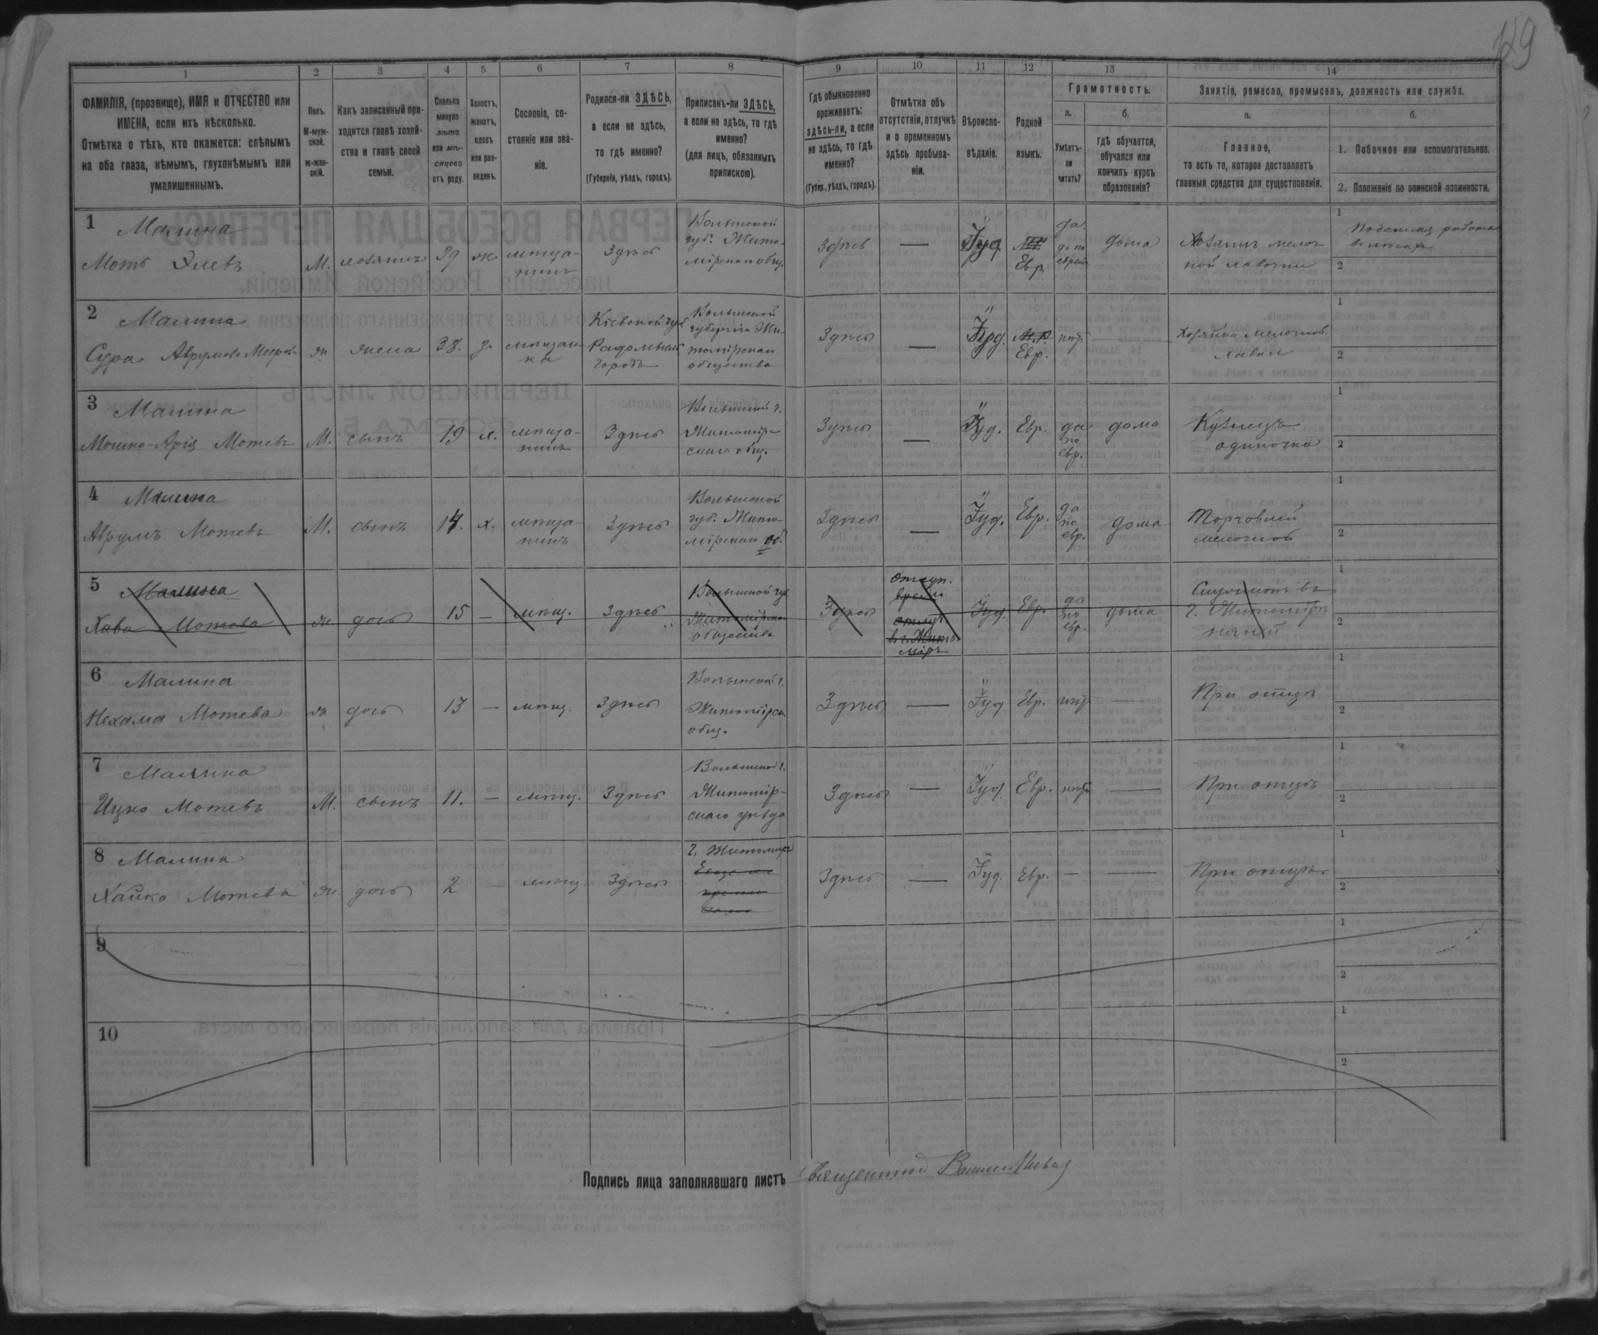 129
1
2
3
4
5
6
7
8
9
10
11
12
13
14
ФАМИЛІЯ, (прозвище), ИМЯ и ОТЧЕСТВО или
ИМЕНА, если ихъ нѣсколько.
Отмѣтка о тѣхъ, кто окажется: слѣпымъ
на оба глаза, нѣмымъ, глухонѣмымъ или
умалишеннымъ.
Полъ.
М-муж-
ской.
Ж-жен-
скій.
Какъ записанный при-
ходится главѣ хозяй-
ства и главѣ своей
семьи.
Сколько
минуло
лѣтъ
или мѣ-
сяцевъ
отъ роду.
Холостъ,
женатъ,
вдовъ
или раз-
веденъ.
Сословіе, со-
стояніе или зва-
ніе.
Родился-ли ЗДѢСЬ,
а если не здѣсь,
то гдѣ именно?
(Губернія, уѣздъ, городъ).
Приписанъ-ли ЗДѢСЬ,
а если не здѣсь, то гдѣ
именно?
(для лицъ, обязанныхъ
припискою).
Гдѣ обыкновенно
проживаетъ:
здѣсь-ли, а если
не здѣсь, то гдѣ
именно?
(Губер., уѣздъ, городъ).
Отмѣтка объ
отсутствіи, отлучкѣ
и о временномъ
здѣсь пребыва-
ніи.
Вѣроиспо-
вѣданіе.
Родной
языкъ.
Грамотность.
а.
Умѣетъ-
ли
читать?
б.
гдѣ обучается,
обучался или
кончилъ курсъ
образованія?
Занятіе, ремесло, промыселъ, должность или служба.
а.
Главное,
то есть то, которое доставляетъ
главныя средства для существованія.
б.
1. Побочное или вспомогательное.
2. Положеніе по воинской повинности.
1
Малина
Моть Элевъ
М. хозяинъ 39 ж. мѣща-
нинъ
Здѣсь
Волынской
губ. Жито-
мірскаго общ.
Здѣсь — Іуд Евр
да
дома
Хозяинъ мелоч
ной лавочки
1
2
2
Малина
Сура
ж жена 38. з. мѣщан-
ка
Кіевской губ
Радомысль
городъ
Волынской
губерніи Жи-
томірскаго
общества
Здѣсь — Іуд. Евр. нѣтъ —
1
2
3
Малина
Мошко-Аріъ Мотевъ
М. сынъ 19 х. мѣща-
нинъ
Здѣсь
Волынской г.
Житомір-
скаго общ.
Здѣсь — Іуд. Евр. да
по
евр.
дома
Кузнецъ
одиночка
1
2
4
Малина
Аврумъ Мотевъ
М. сынъ 14. х. мѣща-
нинъ
Здѣсь
Волынской
губ. Жито-
мірскаго об.
Здѣсь — Іуд. Евр. да
по
евр.
дома
Торговлей
мелочной
1
2
5
Малина
Хава Мотева
ж. дочь 15 — мѣщ. Здѣсь
Волынской гу.
Житомірска
общества
Здѣсь
Іуд. Евр да
по
евр.
дома
г. Житомірѣ
няней
1
2
6
Малина
Нехама Мотева
ж дочь 13 — мѣщ. Здѣсь
Волынской г.
Житомірск
общ.
Здѣсь — Іуд Евр. нѣтъ — При отцѣ
1
2
7
Малина
Ицко Мотевъ
М. сынъ 11. — мѣщ. Здѣсь
Волынской г.
Житомір-
скаго уѣзда
Здѣсь — Іуд. Евр. нѣтъ — При отцѣ
1
2
8
Малина
Хайка Мотева
ж. дочь 2 — мѣщ Здѣсь
г. Житоміра
Здѣсь — Іуд. Евр. — — При отцѣ.
1
2
9
1
2
10
1
2
Подпись лица заполнявшаго листъ